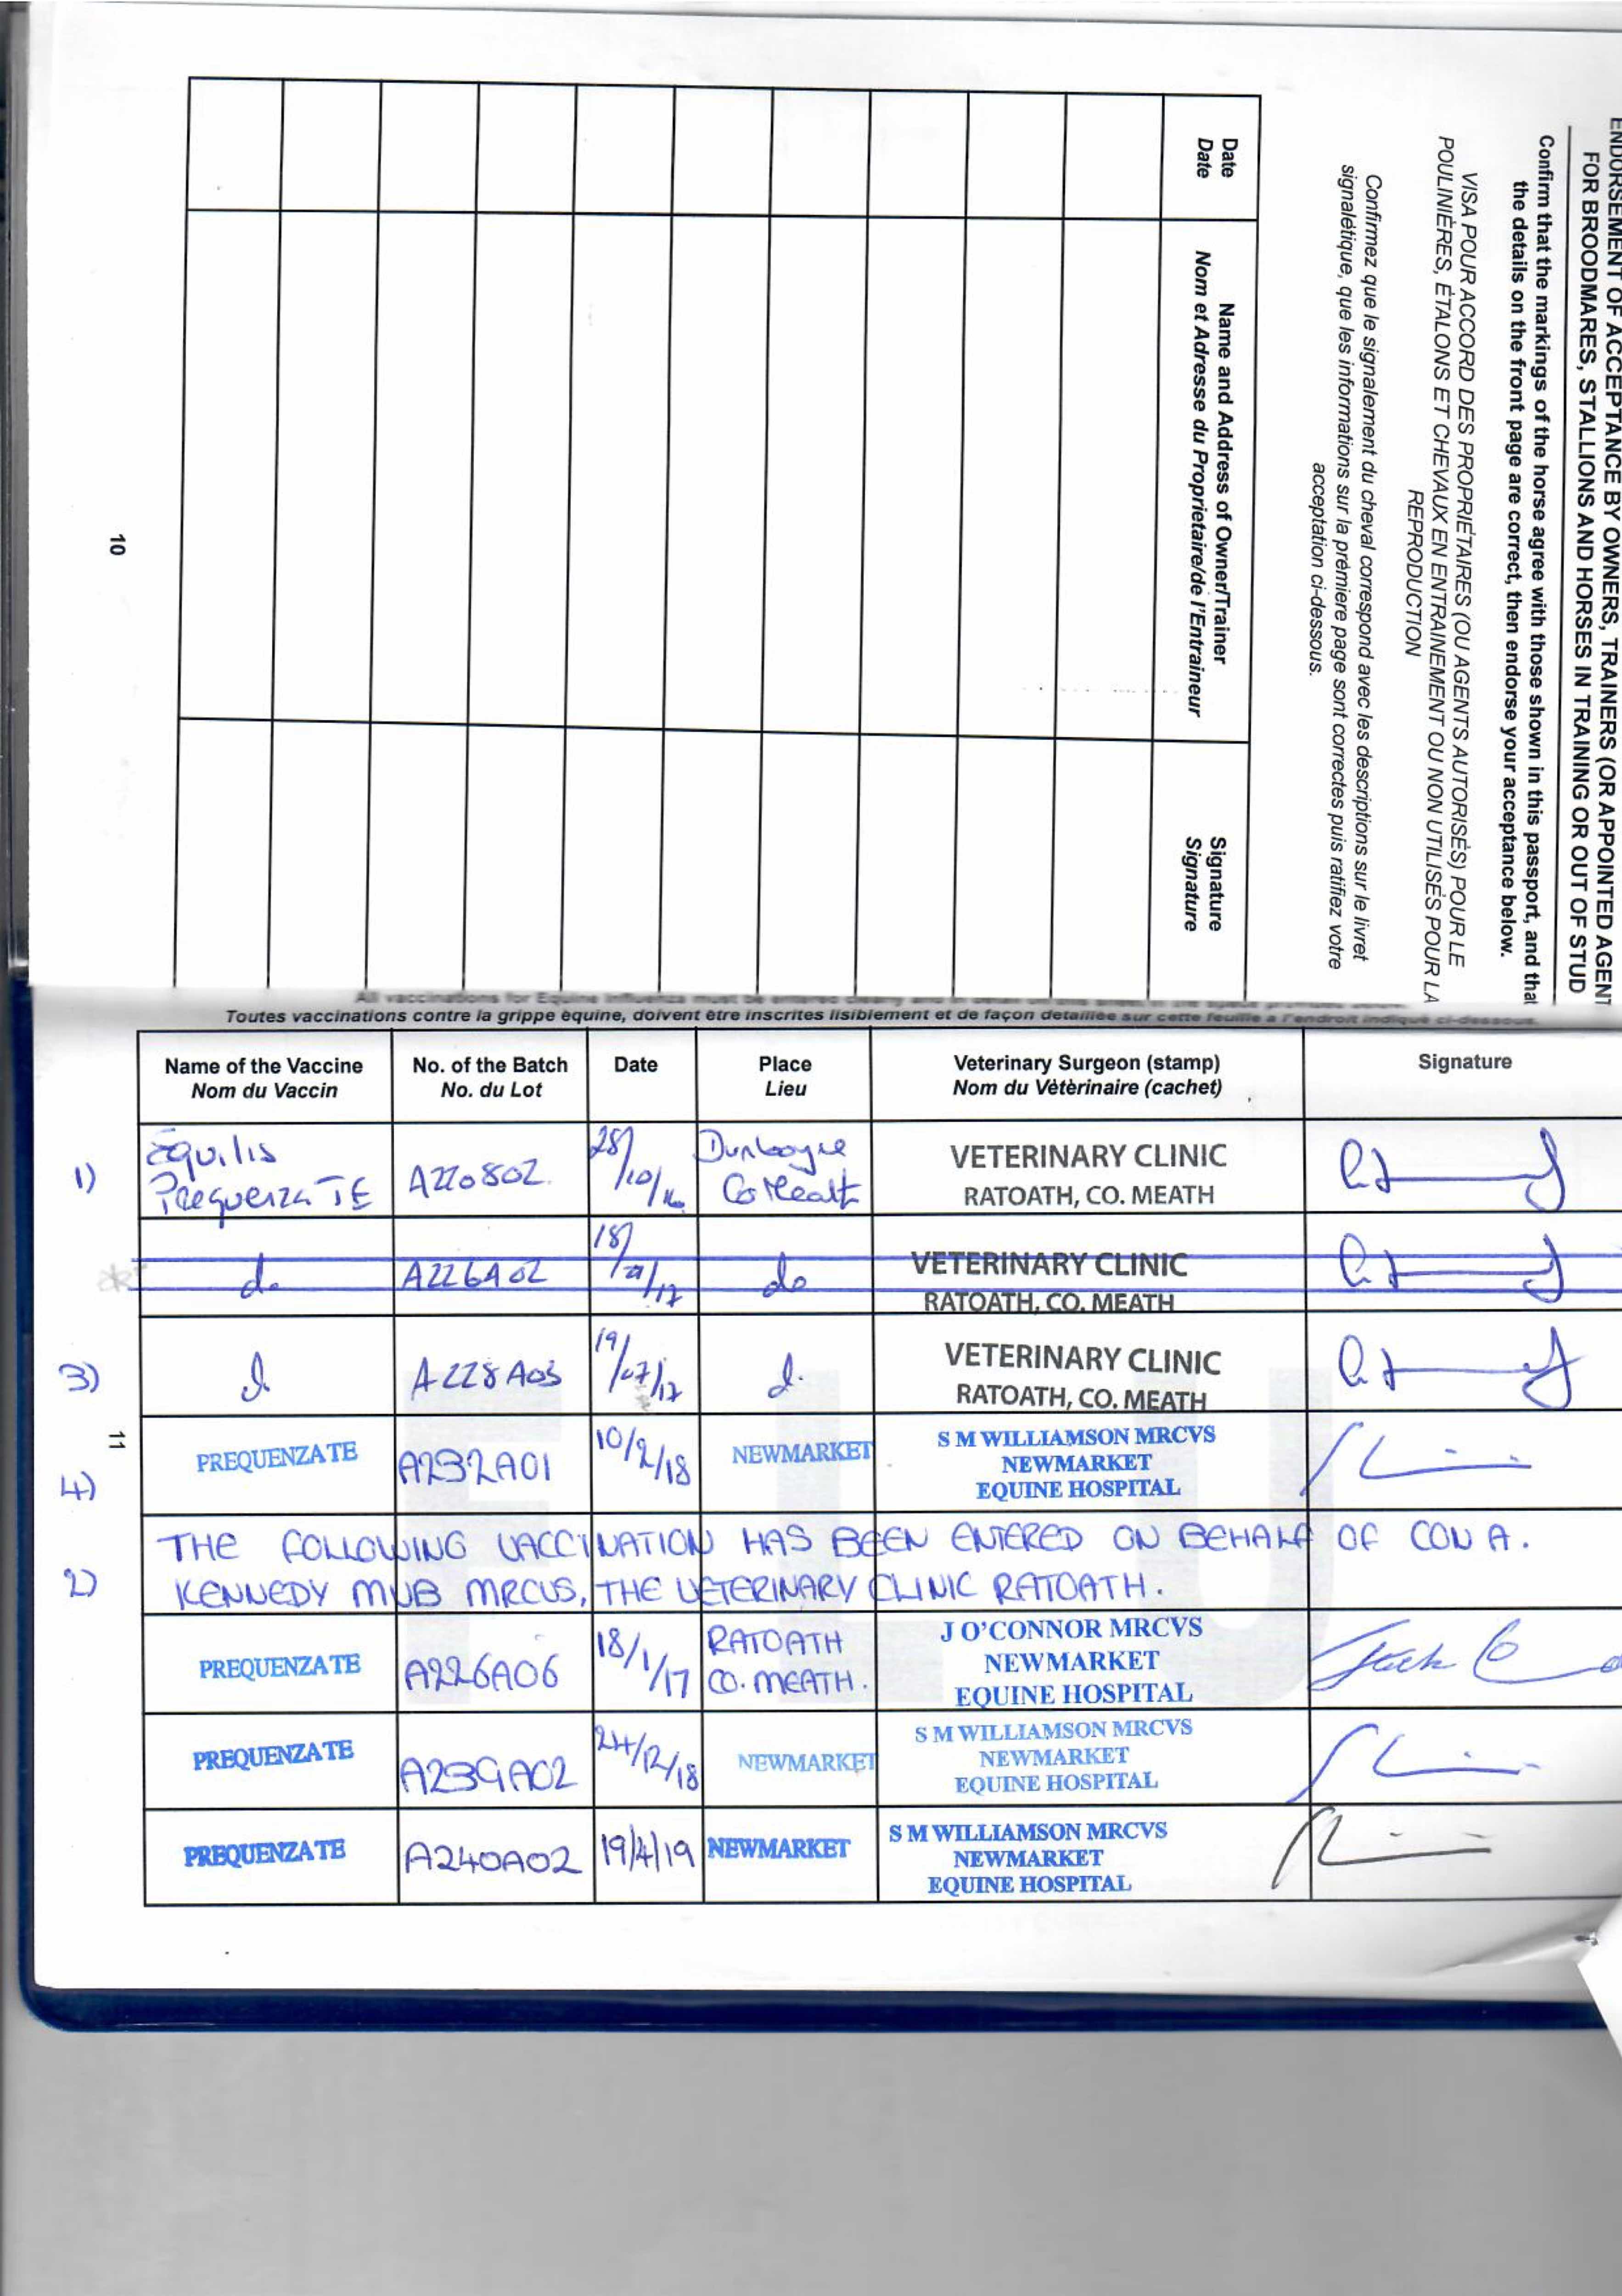 ENDORSEMENT OF ACCEPTANCE BY OWNERS, TRAINERS (OR APPOINTED AGENT
FOR BROODMARES, STALLIONS AND HORSES IN TRAINING OR OUT OF STUD
Confirm that the markings of the horse agree with those shown in this passport, and that
the details on the front page are correct, then endorse your acceptance below.
VISA POUR ACCORD DES PROPRIÉTAIRES (OU AGENTS AUTORISÉS) POUR LE
POULINIÈRES, ÉTALONS ET CHEVAUX EN ENTRAINEMENT OU NON UTILISÉS POUR LA
REPRODUCTION
Confirmez que le signalement du cheval correspond avec les descriptions sur le livret
signalétique, que les informations sur la première page sont correctes puis ratifiez votre
acceptation ci-dessous.
Date Name and Address of Owner/Trainer Signature
Date Nom et Adresse du Proprietaire/de l'Entraineur Signature
10
All vaccinations for Equine Influenza must be entered clearly and in
Toutes vaccinations contre la grippe équine, doivent être inscrites lisiblement et de façon detaillée sur cette feuille a l'endroit indiqué ci-dessous.
Name of the Vaccine No. of the Batch Date Place Veterinary Surgeon (stamp) Signature
Nom du Vaccin No. du Lot Lieu Nom du Vétèrinaire (cachet)
1) Equilis Prequenza TE A220802 28/10/16 Dunboyne Co Meath VETERINARY CLINIC
RATOATH, CO. MEATH
do A226A02 18/ /17 do VETERINARY CLINIC
RATOATH, CO. MEATH
3) d. A228A03 19/07/17 d. VETERINARY CLINIC
RATOATH, CO. MEATH
11
4) PREQUENZATE A232A01 10/2/18 NEWMARKET S M WILLIAMSON MRCVS
NEWMARKET
EQUINE HOSPITAL
THE FOLLOWING VACCINATION HAS BEEN ENTERED ON BEHALF OF CON A.
2) KENNEDY MVB MRCVS, THE VETERINARY CLINIC RATOATH.
PREQUENZATE A226A06 18/1/17 RATOATH CO. MEATH. J O'CONNOR MRCVS
NEWMARKET
EQUINE HOSPITAL
PREQUENZATE A239A02 24/12/18 NEWMARKET S M WILLIAMSON MRCVS
NEWMARKET
EQUINE HOSPITAL
PREQUENZATE A240A02 19/4/19 NEWMARKET S M WILLIAMSON MRCVS
NEWMARKET
EQUINE HOSPITAL
FLU